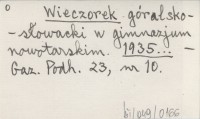 o
Wieczorek góralsko-
-słowacki w gimnazjum
nowotarskim. 1935... –
Gaz. Podh. 23, nr 10.
bi/049/0166